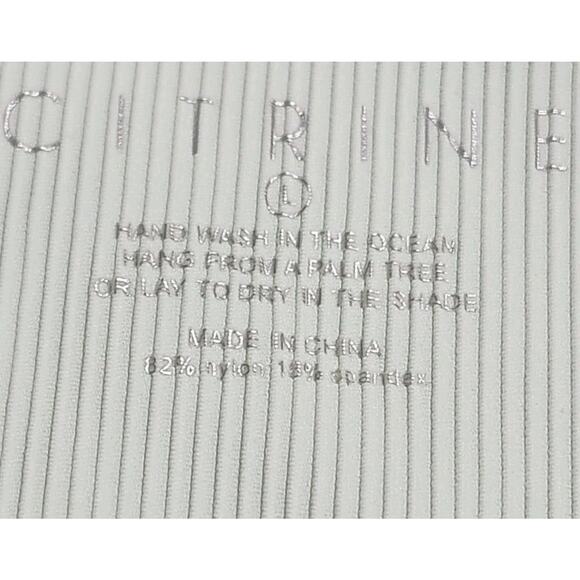 CITRINE
L
HAND WASH IN THE OCEAN
HANG FROM A PALM TREE
OR LAY TO DRY IN THE SHADE
MADE IN CHINA
82% nylon/18% spandex